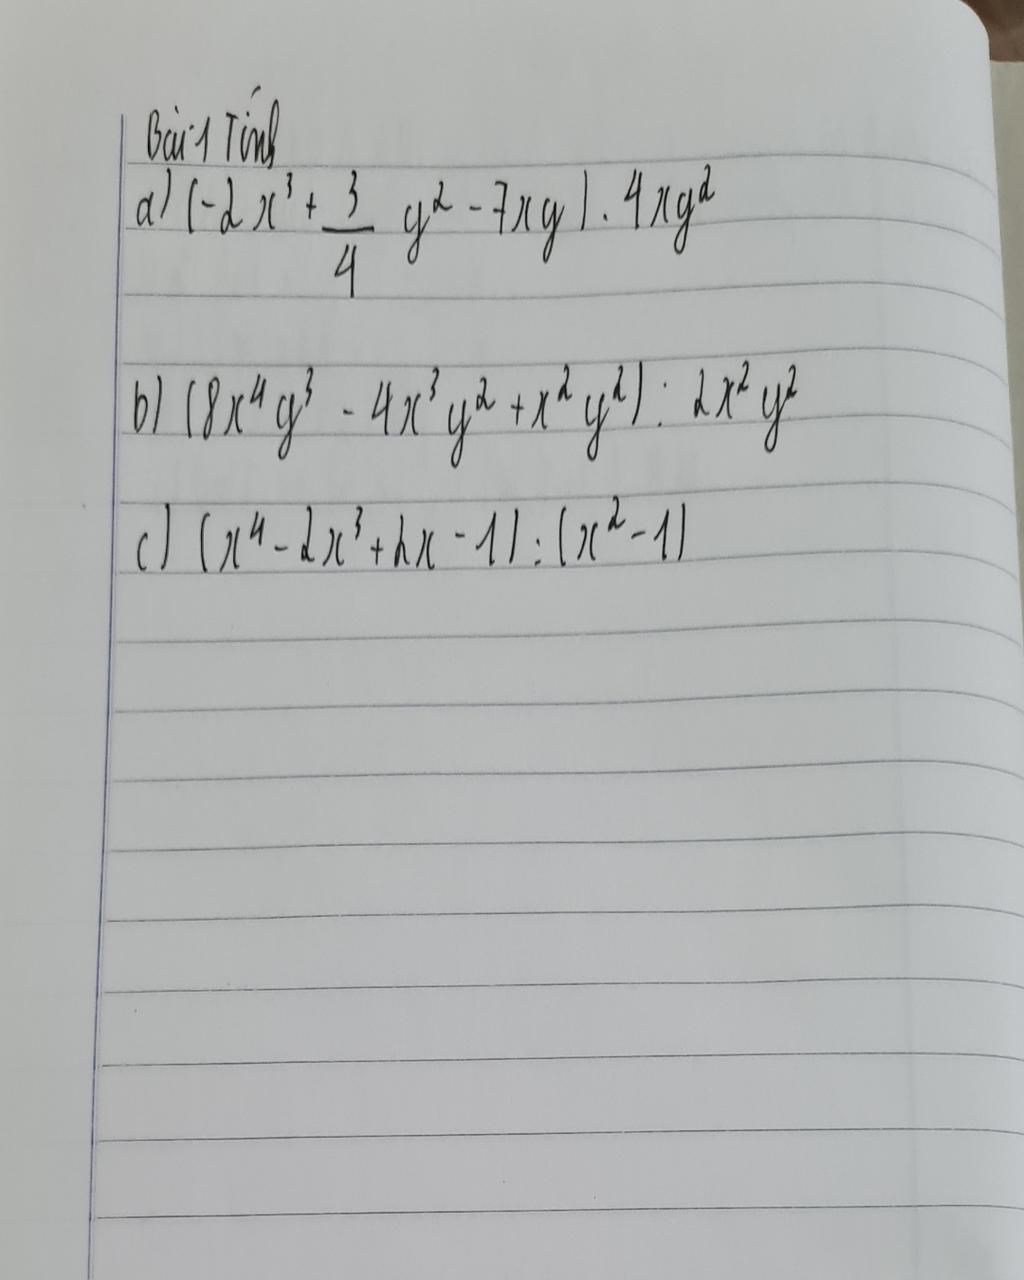 Bài 1 Tính
a) (-2x³ + 3/4 y² - 7xy) . 4xy²
b) (8x⁴y³ - 4x³y² + x²y²) : 2x²y²
c) (x⁴ - 2x³ + 2x - 1) : (x² - 1)